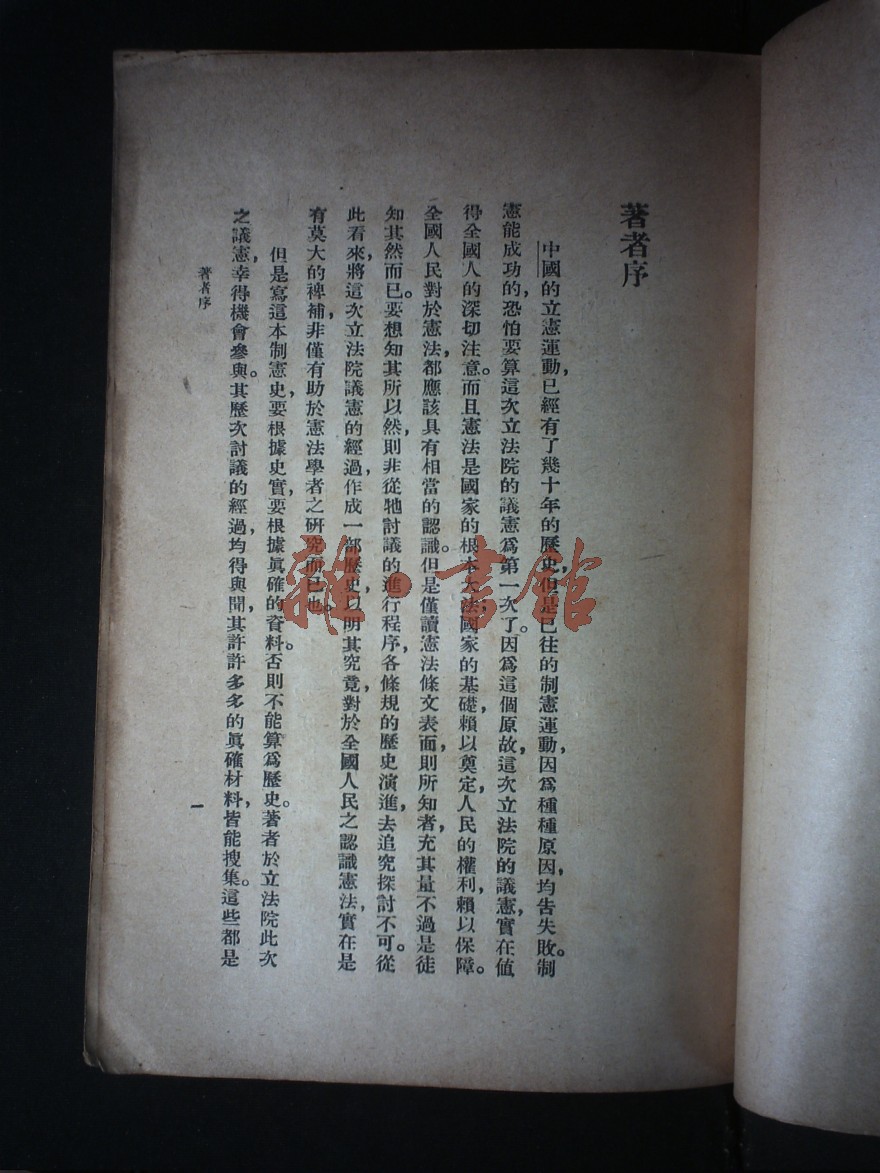 著者序
中國的立憲運動，已經有了幾十年的歷史，但是已往的制憲運動，因爲種種原因，均吿失敗。制
憲能成功的，恐怕要算這次立法院的議憲爲第一次了。因爲這個原故，這次立法院的議憲，實在値
得全國人的深切注意。而且憲法是國家的根本大法，國家的基礎，賴以奠定，人民的權利，賴以保障。
全國人民對於憲法，都應該具有相當的認識。但是僅讀憲法條文表面，則所知者，充其量不過是徒
知其然而已。要想知其所以然，則非從牠討議的進行程序，各條規的歷史演進，去追究探討不可。從
此看來，將這次立法院議憲的經過，作成一部歷史，以明其究竟，對於全國人民之認識憲法，實在是
有莫大的裨補，非僅有助於憲法學者之研究而已也。
但是寫這本制憲史，要根據史實，要根據眞確的資料。否則不能算爲歷史。著者於立法院此次
之議憲，幸得機會參與。其歷次討議的經過，均得與聞，其許許多多的眞確材料，皆能搜集。這些都是
著者序
一
雜·書館